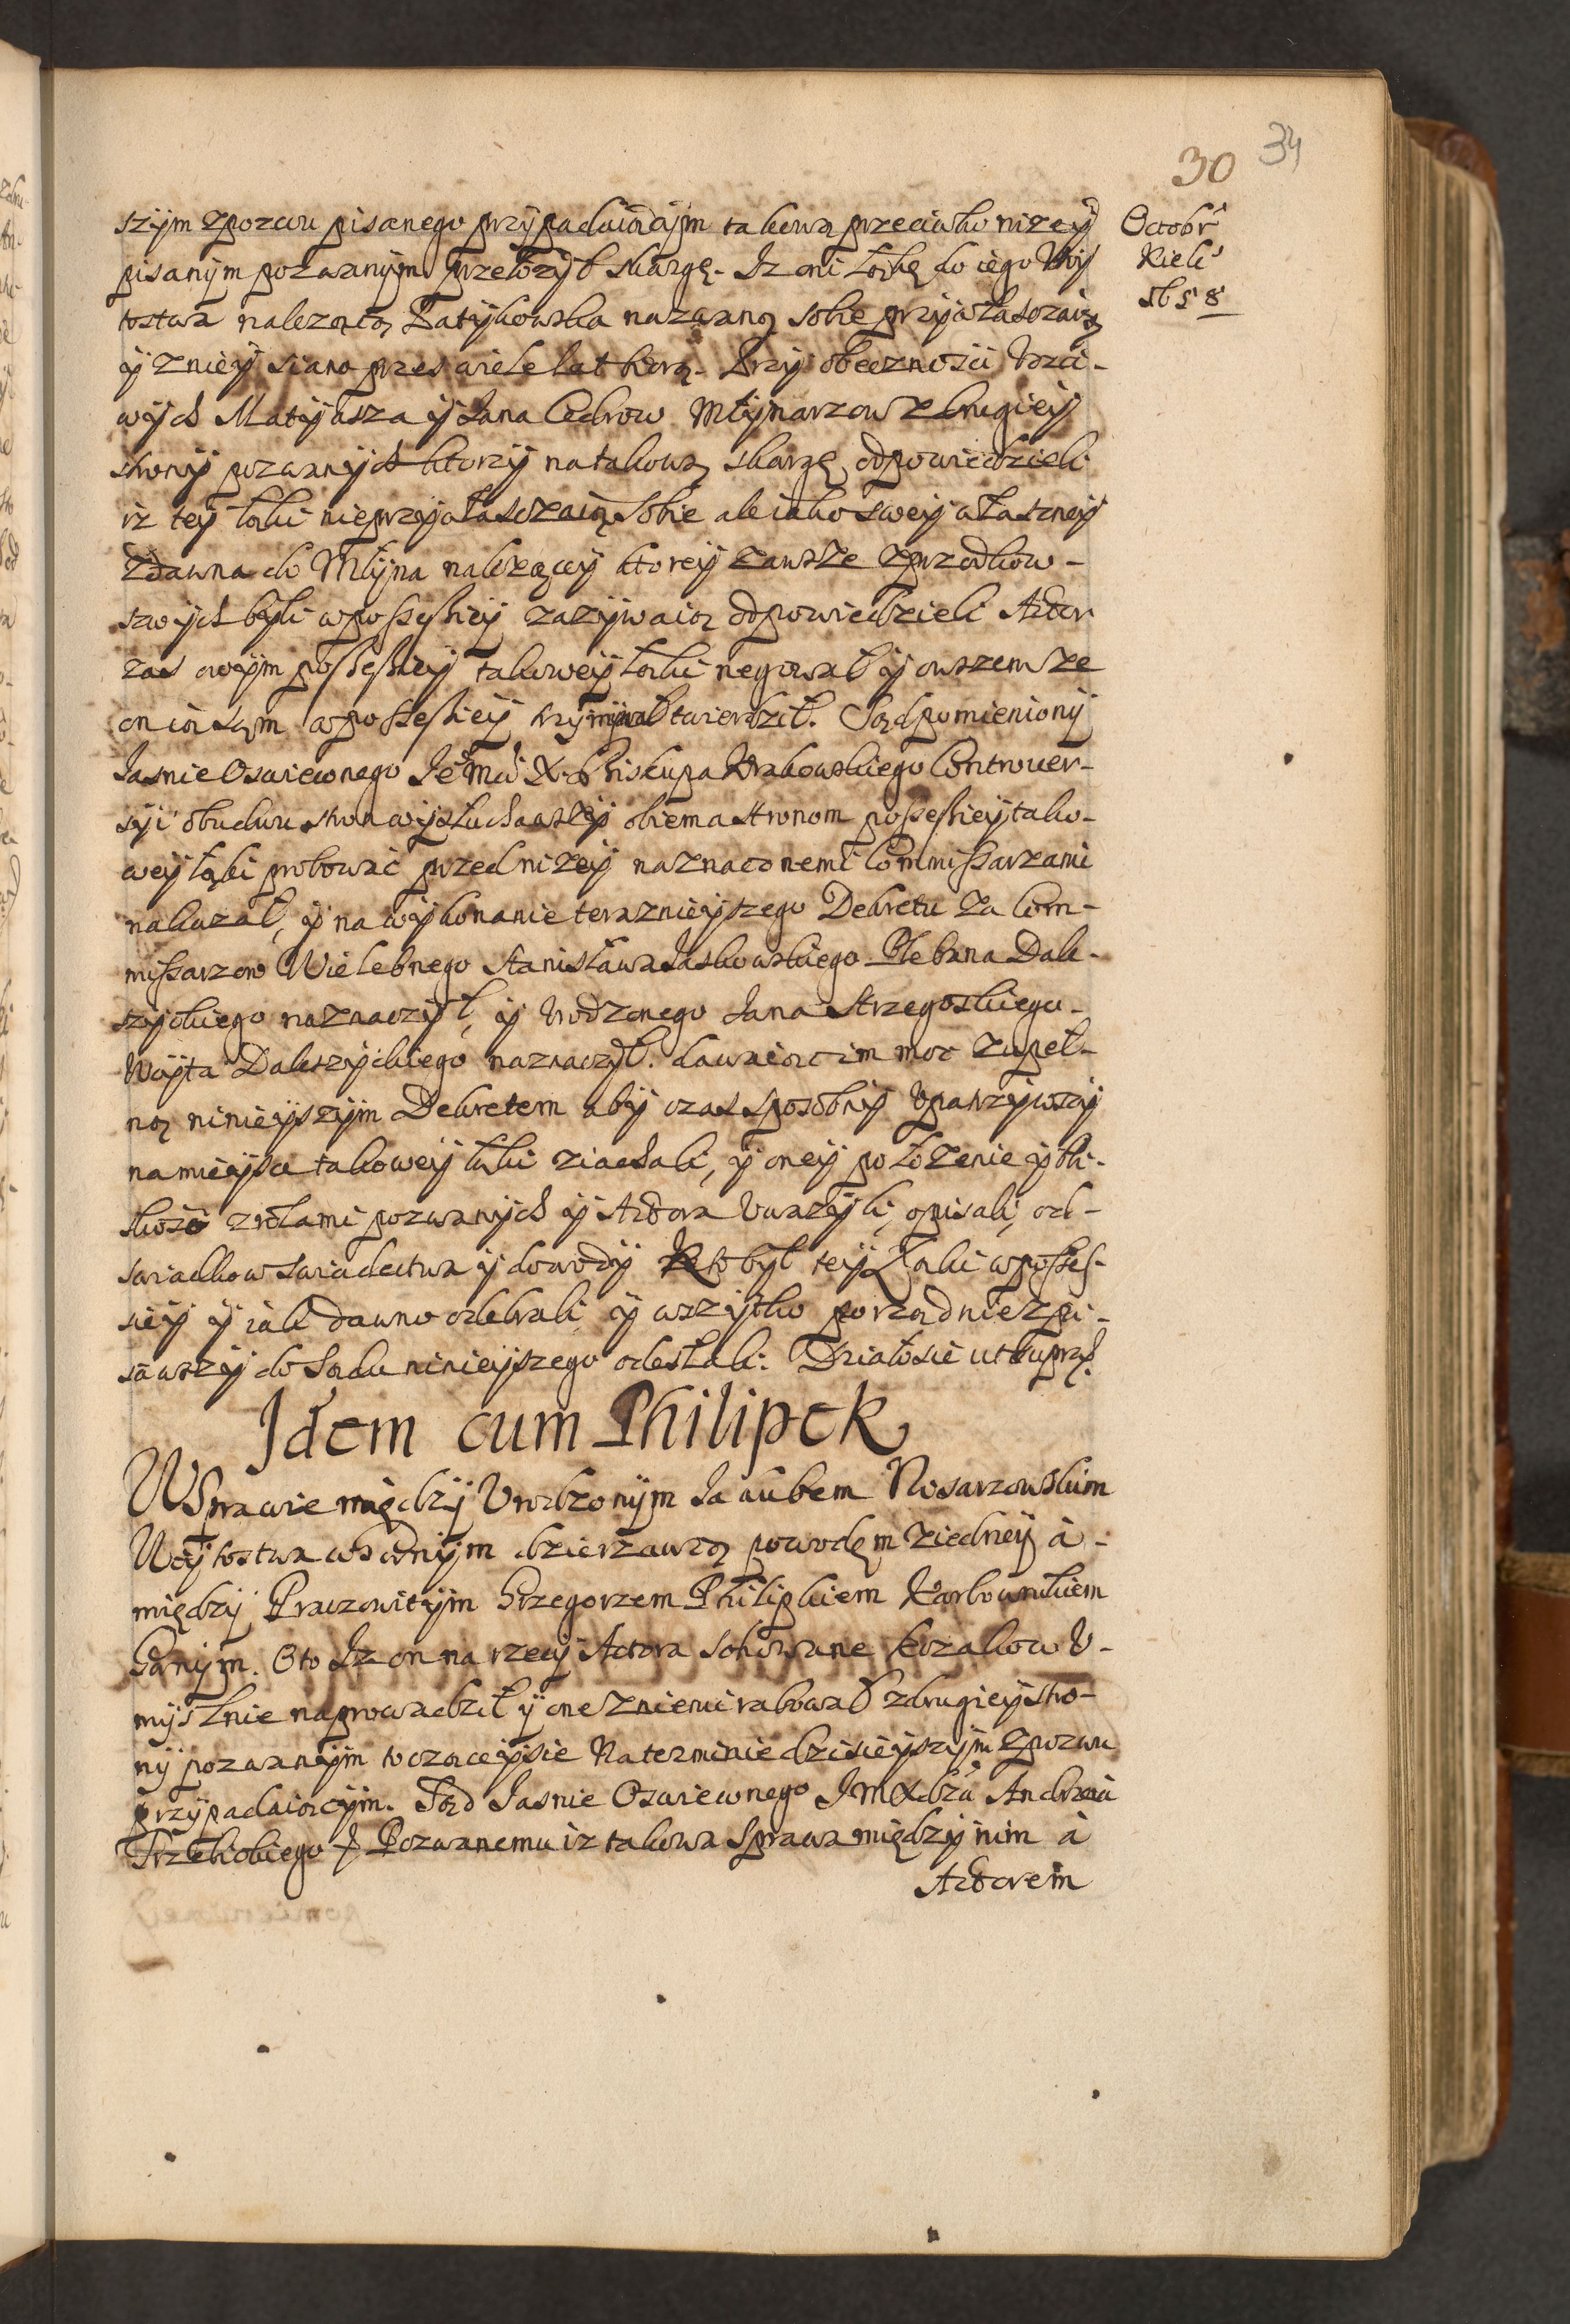 30 34
Octobr
Kielc
1658
szym zpozwu pisanego przypadaiącym takową przeciwko nizey
pisanym pozwanym przełozył skargę. Iz oni łąkę do iego Woy
tostwa nalezącą nazwaną sobie przywłasczaią
y zniey siano przes wiele lat biorą. Przy obecznosci Vczci-
wych Matyasza y Iana Młynarzow zdrugiey
strony pozwanych ktorzy natakową skargę odpowiedzieli
iz tey łąki nieprzywłasczaią sobie ale iako swey własney
zdawna do Młyna nalezącey ktorey zawsze zprzodkow-
swych byli wpossessiey zazywaią odpowiedzieli Actor
zas owym possessiey takowey łąki negował y owszem ze
on ią sąm wpossessiey trzymał twierdził. Sąd pomieniony
Iasnie Oswiewnego Ie Mci X. Biskupa Krakowskiego Controuer-
syi obudwu stron wysłuchawszy obiema stronom possessiey tako-
wey łąki probować przed nizey naznaconemi Commissarzami
nakazał, y na wykonanie teraznieyszego Dekretu za Com-
missarzow Wielebnego Stanisława Iaskowskiego Plebana Dale-
szyckiego naznaczył, y Vrodzonego Iana Strzegoskiego-
Woyta Daleszyckiego naznaczył. dawaiąc im moc zupeł-
ną ninieyszym Dekretem aby czas sposobny vpatrzywszy
na mieysce takowey łąki ziachali, y oney położenie y bli-
skość zrolami pozwanych y Actora vwazyli, opisali, od-
swiadkow swiadectwa y dowody kto był tey Łąki wposses-
siey y iak dawno odebrali y wszytko porządnie zpi-
sawszy do Sądu ninieyszego odesłali. Działosie ut supra.
Idem cum Philipek
WSprawie między Vrodzonym Iakubem Nosarzowskim
Woytostwa dzierzawcą powodęm ziedney à-
między Praczowitym Grzegorzem Philipkiem Karbownikiem
. Oto Iz on na rzeczy Actora schowane kozakow V-
myslnie naprowadził y one zniemi rabował zdrugiey stro-
ny pozwanym toczącęysie Naterminie dzisieyszym zpozwu
przypadaiącym. Sąd Iasnie Oswiewnego IMXdza Andrzeia
Trzebickiego Pozwanemu iz takowa sprawa między nim à
Actorem